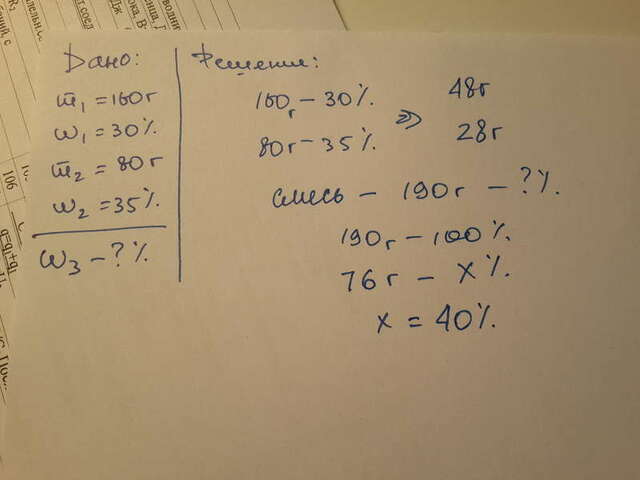 Дано:
m̄₁ = 160г
ω₁ = 30%
m̄₂ = 80г
ω₂ = 35%
ω₃ - ?%
Решение:
160г - 30%
80г - 35%
⇒
48г
28г
смесь - 190г - ?%.
190г - 100%
76г - x%
x = 40%
106
q=q₁+q